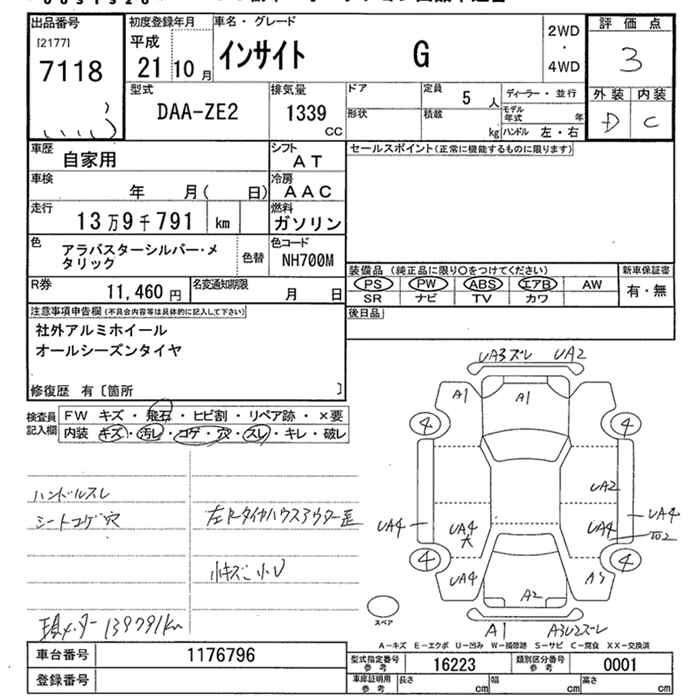 出品番号 初度登録年月 車名・グレード 2WD・4WD 評価点
[2177]
7118 平成 21年 10月 インサイト G 3
型式 排気量 ドア 定員 5人 ディーラー・並行 外装 内装
DAA-ZE2 1339 CC 形状 積載 kg モデル年式 年 D C
ハンドル 左・右
車歴 自家用 シフト AT セールスポイント(正常に機能するものに限ります)
車検 年 月( 日) 冷房 AAC
走行 13万9千791 km 燃料 ガソリン
色 アラバスターシルバー・メタリック 色替 色コード NH700M
装備品 (純正品に限り○をつけてください) 新車保証書
PS PW ABS エアB AW 有・無
SR ナビ TV カワ
R券 11,460円 名変通知期限 月 日
後日品
注意事項申告欄(不具合内容等は具体的に記入して下さい)
社外アルミホイール
オールシーズンタイヤ
修復歴 有〔箇所 〕
検査員記入欄 FW キズ・飛石・ヒビ割・リペア跡・×要
内装 キズ・汚レ・コゲ・穴・スレ・キレ・破レ
UA3ズレ UA2
A1 A1
4 4
ハンドルスレ
シートコゲ穴
左Rタイヤハウスアウター歪
小キズ、小U
UA2
UA4 UA4大 UA4 UA4
4 4
UA4 A2
スペア
A1 A3U2ズレ
現メーター 139791km
A-キズ E-エクボ U-凹み W-補修跡 S-サビ C-腐食 XX-交換済
車台番号 1176796 型式指定番号 参考 16223 類別区分番号 参考 0001
登録番号 車庫証明用 参考 長さ cm 幅 cm 高さ cm